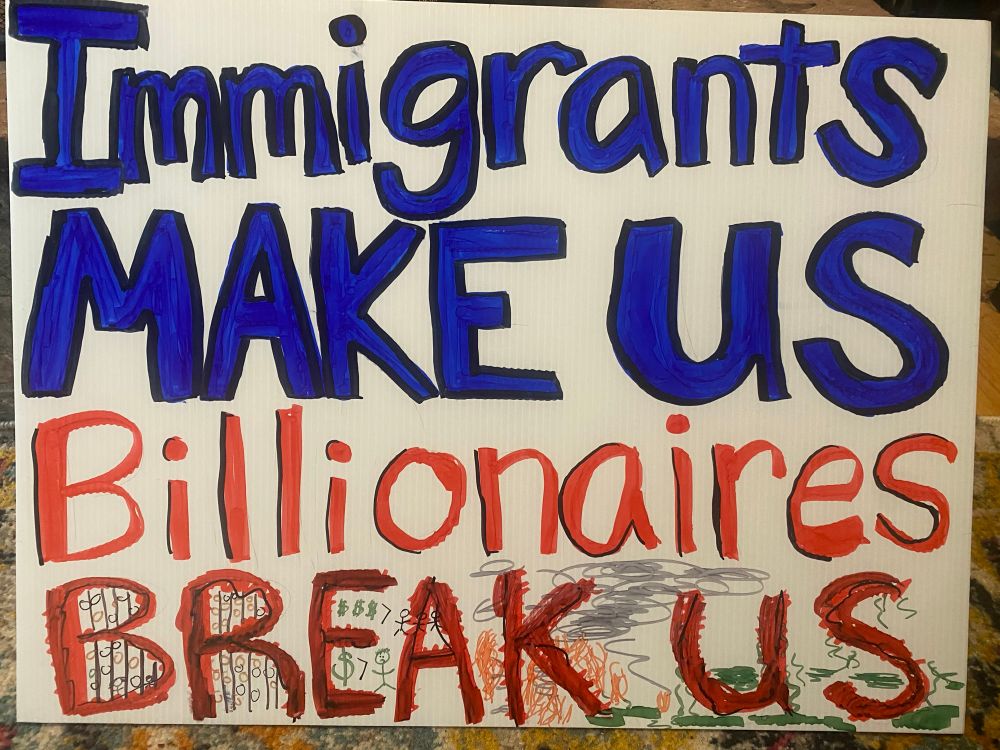 Immigrants
MAKE US
Billionaires
BREAK US
$$$ >
$ >